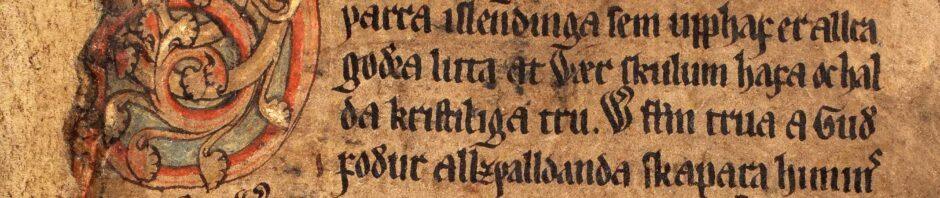 varra islendinga sem upphaf er allra
godra luta at ver skulum hafa ok hal
da kristiliga tru. skm trua a Gud
fodur allzvalldanda skapara himins